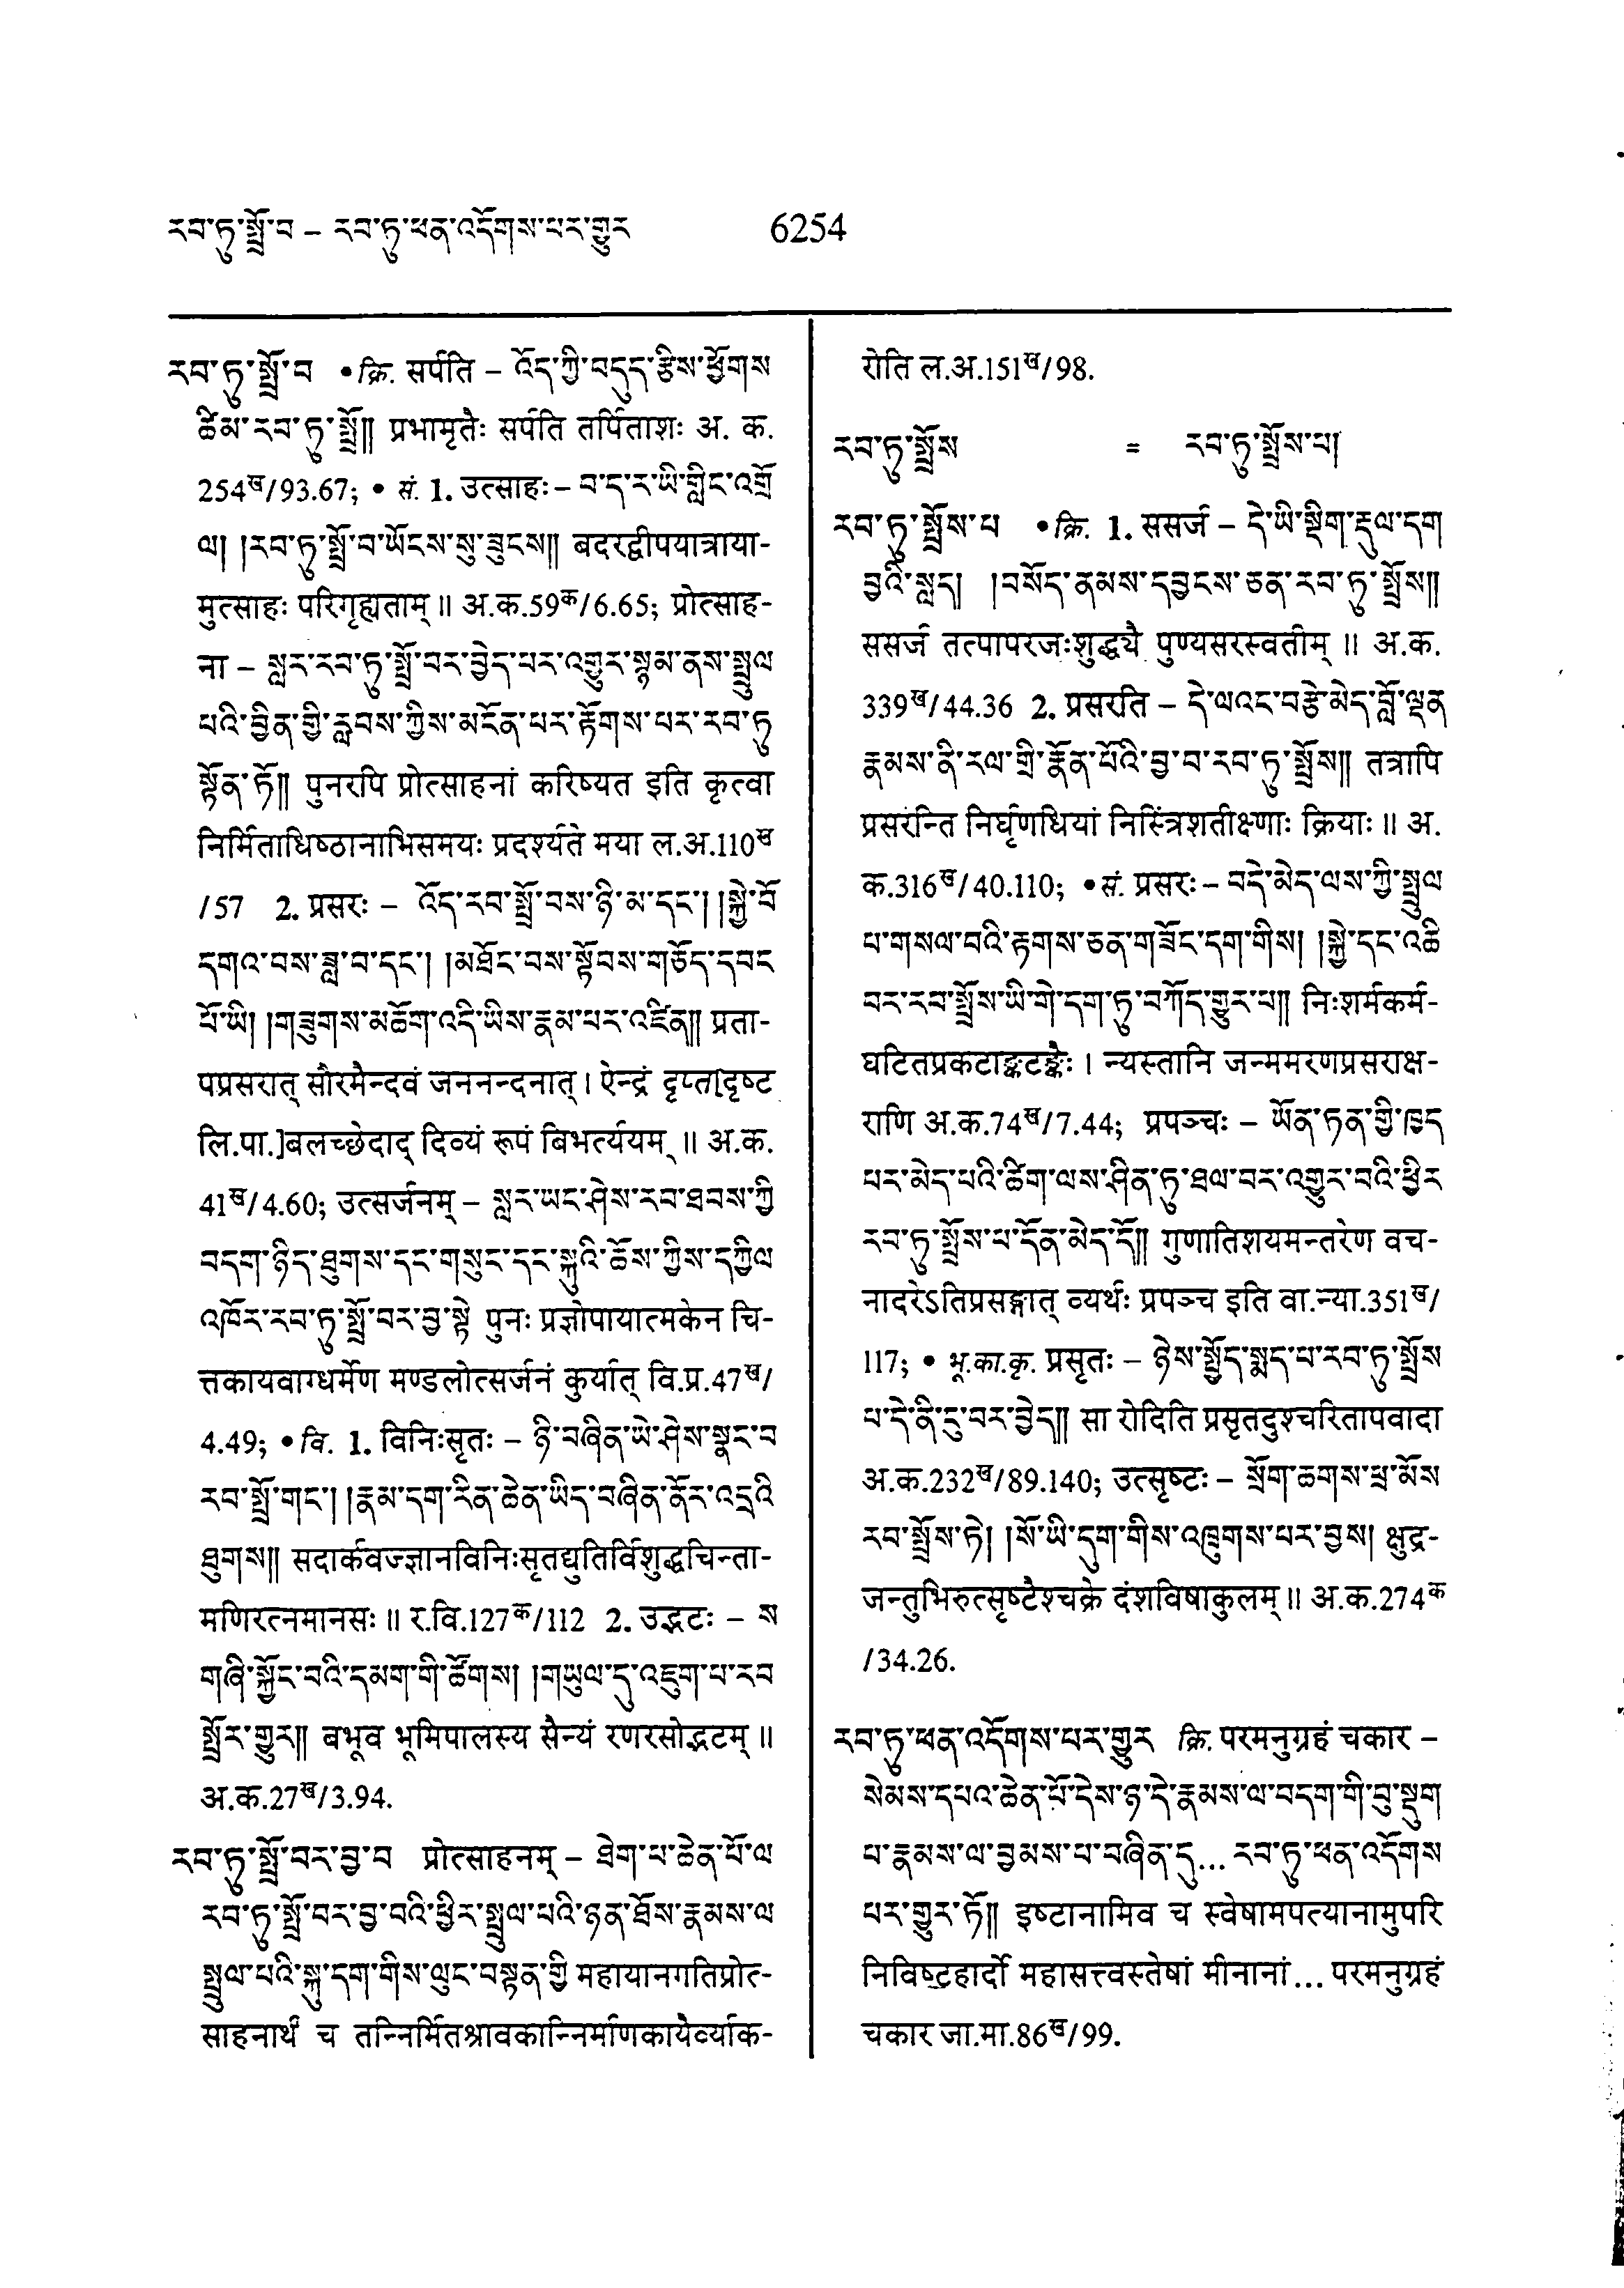 རབ་ཏུ་སྤྲོ་བ – རབ་ཏུ་ཕན་འདོགས་པར་གྱུར 6254
རབ་ཏུ་སྤྲོ་བ •क्रि. सर्पति – འོད་ཀྱི་བདུད་རྩིས་ཕྱོགས
ཚིམ་རབ་ཏུ་སྤྲོ།། प्रभामृतैः सर्पति तर्पिताशः अ. क.
254ख/93.67; • सं. 1. उत्साहः – བ་ད་ར་ཡི་གླིང་འགྲོ
ལ། །རབ་ཏུ་སྤྲོ་བ་ཡོངས་སུ་ཟུངས།། बदरद्वीपयात्राया-
मुत्साहः परिगृह्यताम् ॥ अ.क.59क/6.65; प्रोत्साह-
ना – སླར་རབ་ཏུ་སྤྲོ་བར་བྱེད་པར་འགྱུར་སྙམ་ནས་སྤྲུལ
པའི་བྱིན་གྱི་རླབས་ཀྱིས་མངོན་པར་རྟོགས་པར་རབ་ཏུ
སྟོན་ཏོ།། पुनरपि प्रोत्साहनां करिष्यत इति कृत्वा
निर्मिताधिष्ठानाभिसमयः प्रदर्श्यते मया ल.अ.110ख
/57 2. प्रसरः – འོད་རབ་སྤྲོ་བས་ཉི་མ་དང་། །སྐྱེ་བོ
དགའ་བས་ཟླ་བ་དང་། །མཐོང་བས་སྟོབས་གཅོད་དབང
པོ་ཡི། །གཟུགས་མཆོག་འདི་ཡིས་རྣམ་པར་འཛིན།། प्रता-
पप्रसरात् सौरमैन्दवं जननन्दनात्। ऐन्द्रं दृप्त[दृष्ट
लि.पा.]बलच्छेदाद् दिव्यं रूपं बिभर्त्ययम् ॥ अ.क.
41ख/4.60; उत्सर्जनम् – སླར་ཡང་ཤེས་རབ་ཐབས་ཀྱི
བདག་ཉིད་ཐུགས་དང་གསུང་དང་སྐུའི་ཆོས་ཀྱིས་དཀྱིལ
འཁོར་རབ་ཏུ་སྤྲོ་བར་བྱ་སྟེ पुनः प्रज्ञोपायात्मकेन चि-
त्तकायवाग्धर्मेण मण्डलोत्सर्जनं कुर्यात् वि.प्र.47ख/
4.49; • वि. 1. विनिःसृतः – ཉི་བཞིན་ཡེ་ཤེས་སྣང་བ
རབ་སྤྲོ་གང་། །རྣམ་དག་རིན་ཆེན་ཡིད་བཞིན་ནོར་འདྲའི
ཐུགས།། सदार्कवज्ज्ञानविनिःसृतद्युतिर्विशुद्धचिन्ता-
मणिरत्नमानसः ॥ र.वि.127क/112 2. उद्भटः – ས
གཞི་སྐྱོང་བའི་དམག་གི་ཚོགས། །གཡུལ་དུ་འཇུག་པ་རབ
སྤྲོར་གྱུར།། बभूव भूमिपालस्य सैन्यं रणरसोद्भटम् ॥
अ.क.27ख/3.94.
རབ་ཏུ་སྤྲོ་བར་བྱ་བ प्रोत्साहनम् – ཐེག་པ་ཆེན་པོ་ལ
རབ་ཏུ་སྤྲོ་བར་བྱ་བའི་ཕྱིར་སྤྲུལ་པའི་ཉན་ཐོས་རྣམས་ལ
སྤྲུལ་པའི་སྐུ་དག་གིས་ལུང་བསྟན་གྱི महायानगतिप्रोत्-
साहनार्थं च तन्निर्मितश्रावकान्निर्माणकायैर्व्याक-
रोति ल.अ.151ख/98.
རབ་ཏུ་སྤྲོས = རབ་ཏུ་སྤྲོས་པ།
རབ་ཏུ་སྤྲོས་པ •क्रि. 1. ससर्ज – དེ་ཡི་སྡིག་རྡུལ་དག
བྱའི་སླད། །བསོད་ནམས་དབྱངས་ཅན་རབ་ཏུ་སྤྲོས།།
ससर्ज तत्पापरजःशुद्ध्यै पुण्यसरस्वतीम् ॥ अ.क.
339ख/44.36 2. प्रसरति – དེ་ལའང་བརྩེ་མེད་བློ་ལྡན
རྣམས་ནི་རལ་གྲི་རྣོན་པོའི་བྱ་བ་རབ་ཏུ་སྤྲོས།། तत्रापि
प्रसरन्ति निर्घृणधियां निस्त्रिंशतीक्ष्णाः क्रियाः ॥ अ.
क.316ख/40.110; •सं. प्रसरः – བདེ་མེད་ལས་ཀྱི་སྤྲུལ
པ་གསལ་བའི་རྟགས་ཅན་གཟོང་དག་གིས། །སྐྱེ་དང་འཆི
བར་རབ་སྤྲོས་ཡི་གེ་དག་ཏུ་བཀོད་གྱུར་པ།། निःशर्मकर्म-
घटितप्रकटाङ्कटङ्कैः । न्यस्तानि जन्ममरणप्रसराक्ष-
राणि अ.क.74ख/7.44; प्रपञ्चः – ཡོན་ཏན་གྱི་ཁྱད
པར་མེད་པའི་ཚིག་ལས་ཤིན་ཏུ་ཐལ་བར་འགྱུར་བའི་ཕྱིར
རབ་ཏུ་སྤྲོས་པ་དོན་མེད་དོ།། गुणातिशयमन्तरेण वच-
नादरेऽतिप्रसङ्गात् व्यर्थः प्रपञ्च इति वा.न्या.351ख/
117; • भू.का.कृ. प्रसृतः – ཉེས་སྤྱོད་སྨད་པ་རབ་ཏུ་སྤྲོས
པ་དེ་ནི་ངུ་བར་བྱེད།། सा रोदिति प्रसृतदुश्चरितापवादा
अ.क.232ख/89.140; उत्सृष्टः – སྲོག་ཆགས་ཕྲ་མོས
རབ་སྤྲོས་ཏེ། །སོ་ཡི་དུག་གིས་འཁྲུགས་པར་བྱས། क्षुद्र-
जन्तुभिरुत्सृष्टैश्चक्रे दंशविषाकुलम् ॥ अ.क.274क
/34.26.
རབ་ཏུ་ཕན་འདོགས་པར་གྱུར क्रि. परमनुग्रहं चकार –
སེམས་དཔའ་ཆེན་པོ་དེས་ཉ་དེ་རྣམས་ལ་བདག་གི་བུ་སྡུག
པ་རྣམས་ལ་བྱམས་པ་བཞིན་དུ... རབ་ཏུ་ཕན་འདོགས
པར་གྱུར་ཏོ།། इष्टानामिव च स्वेषामपत्यानामुपरि
निविष्टहार्दो महासत्त्वस्तेषां मीनानां... परमनुग्रहं
चकार जा.मा.86ख/99.